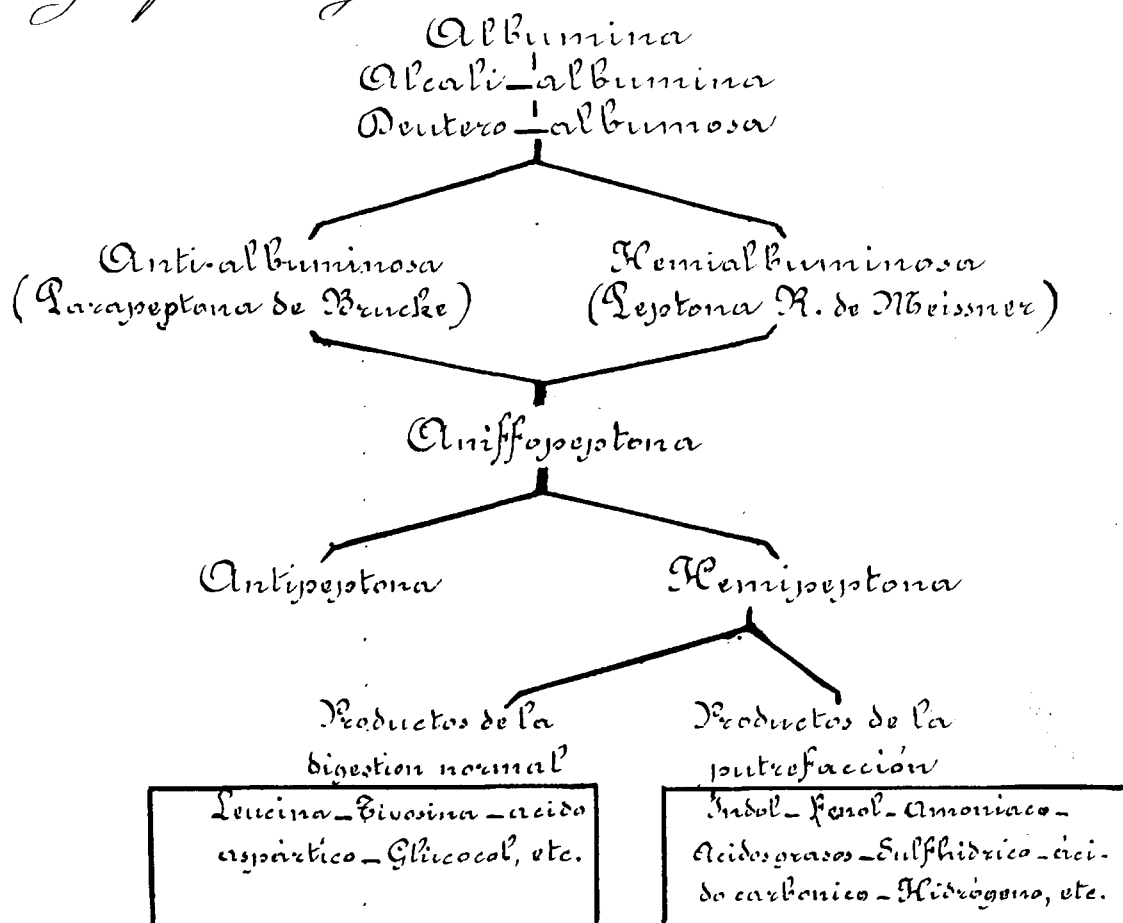 Albumina
Alcali-albumina
Deutero-albumosa
Anti-albuminosa
(Parapeptona de Brucke)
Hemialbuminosa
(Peptona R. de Meissner)
Aniffopeptona
Antipeptona
Hemipeptona
Productos de la
digestion normal
Leucina-Tivosina-acido
aspártico-Glucocol, etc.
Productos de la
putrefacción
Indol-Fenol-Amoniaco-
Acidos grasos-Sulfhidrico-áci-
do carbonico-Hidrógeno, etc.